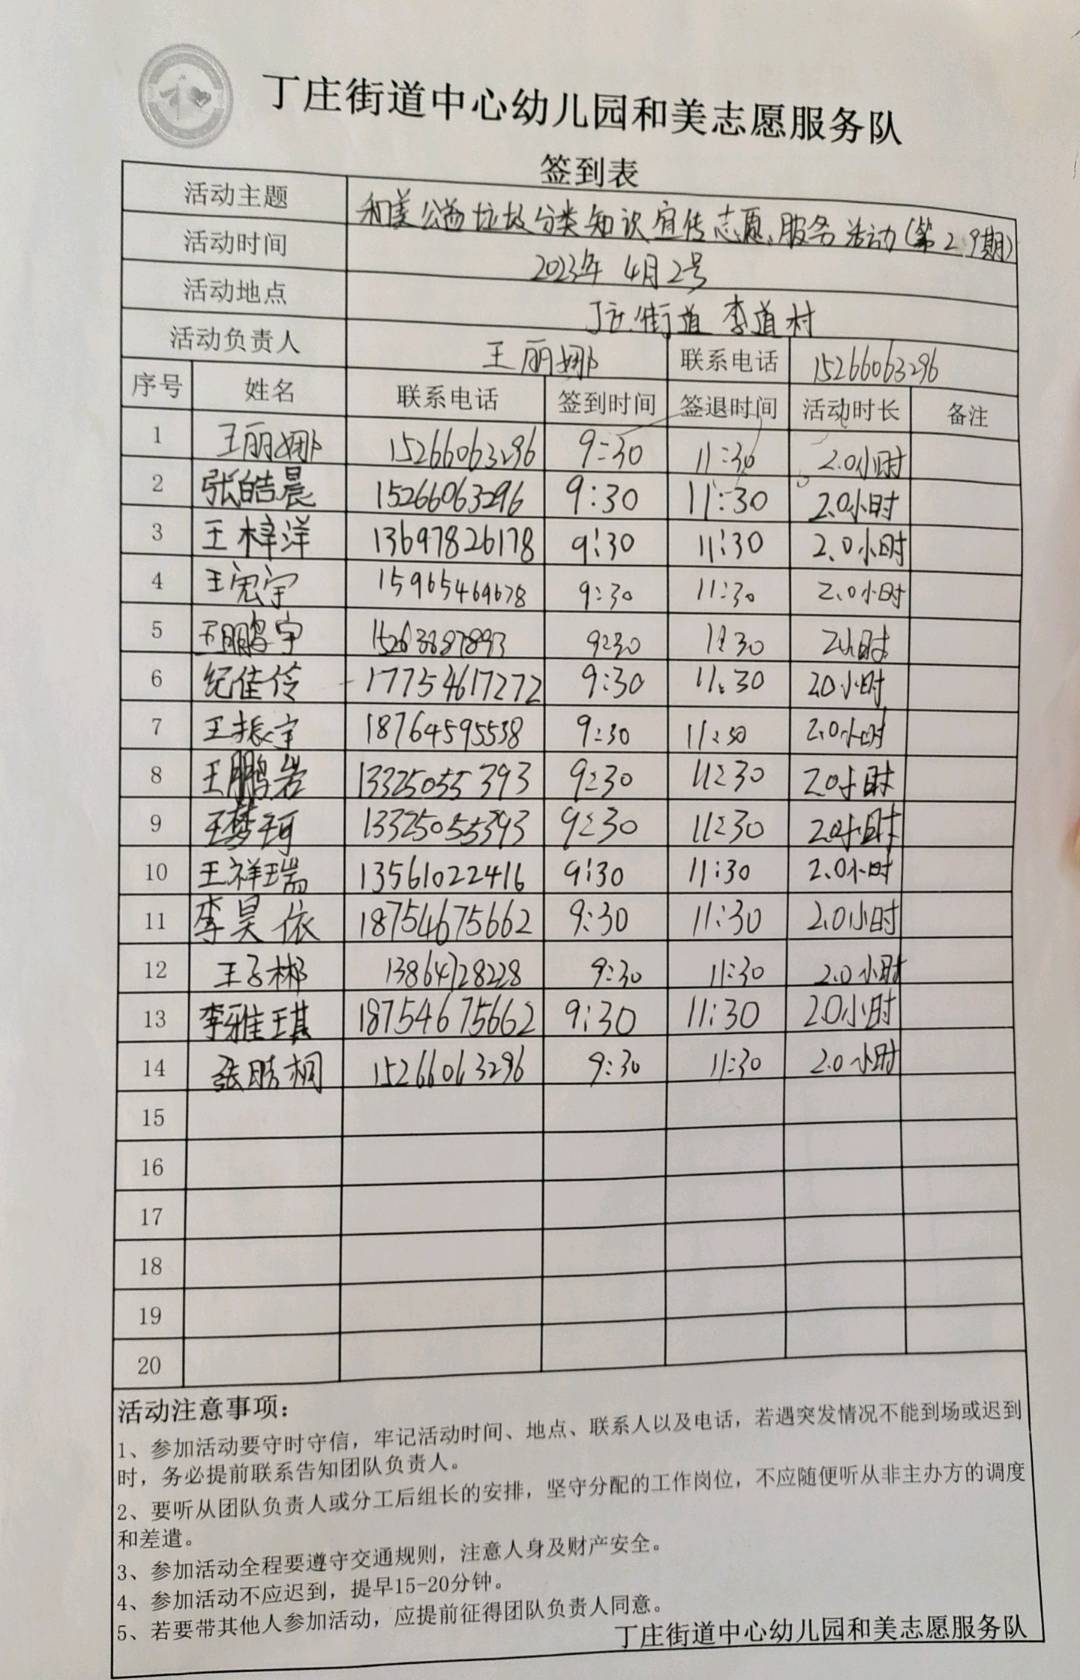 丁庄街道中心幼儿园和美志愿服务队
签到表
活动主题 和美公益垃圾分类知识宣传志愿服务活动(第29期)
活动时间 2023年4月2号
活动地点 丁庄街道李道村
活动负责人 王丽娜 联系电话 15266063296
序号 姓名 联系电话 签到时间 签退时间 活动时长 备注
1 王丽娜 15266063296 9:30 11:30 2.0小时
2 张皓晨 15266063296 9:30 11:30 2.0小时
3 王梓洋 13697826178 9:30 11:30 2.0小时
4 王宏宇 15965469678 9:30 11:30 2.0小时
5 王鹏宇 9:30 11:30 2小时
6 纪佳伶 17754617272 9:30 11:30 20小时
7 王振宇 18764595538 9:30 11:30 2.0小时
8 王鹏岩 13325055393 9:30 11:30 2.0小时
9 王梦珂 13325055393 9:30 11:30 2.0小时
10 王祥瑞 13561022416 9:30 11:30 2.0小时
11 李昊依 18754675662 9:30 11:30 2.0小时
12 王子彬 13864728228 9:30 11:30 2.0小时
13 李雅琪 18754675662 9:30 11:30 20小时
14 张皓桐 15266063296 9:30 11:30 2.0小时
15
16
17
18
19
20
活动注意事项：
1、参加活动要守时守信，牢记活动时间、地点、联系人以及电话，若遇突发情况不能到场或迟到
时，务必提前联系告知团队负责人。
2、要听从团队负责人或分工后组长的安排，坚守分配的工作岗位，不应随便听从非主办方的调度
和差遣。
3、参加活动全程要遵守交通规则，注意人身及财产安全。
4、参加活动不应迟到，提早15-20分钟。
5、若要带其他人参加活动，应提前征得团队负责人同意。
丁庄街道中心幼儿园和美志愿服务队